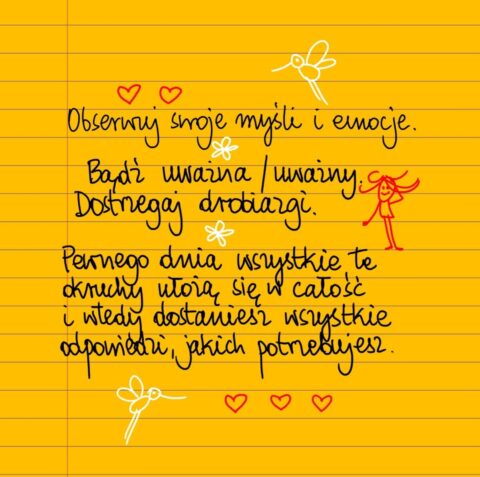 Obserwuj swoje myśli i emocje.
Bądź uważna / uważny.
Dostrzegaj drobiazgi.
Pewnego dnia wszystkie te
okruchy ułożą się w całość
i wtedy dostaniesz wszystkie
odpowiedzi, jakich potrzebujesz.